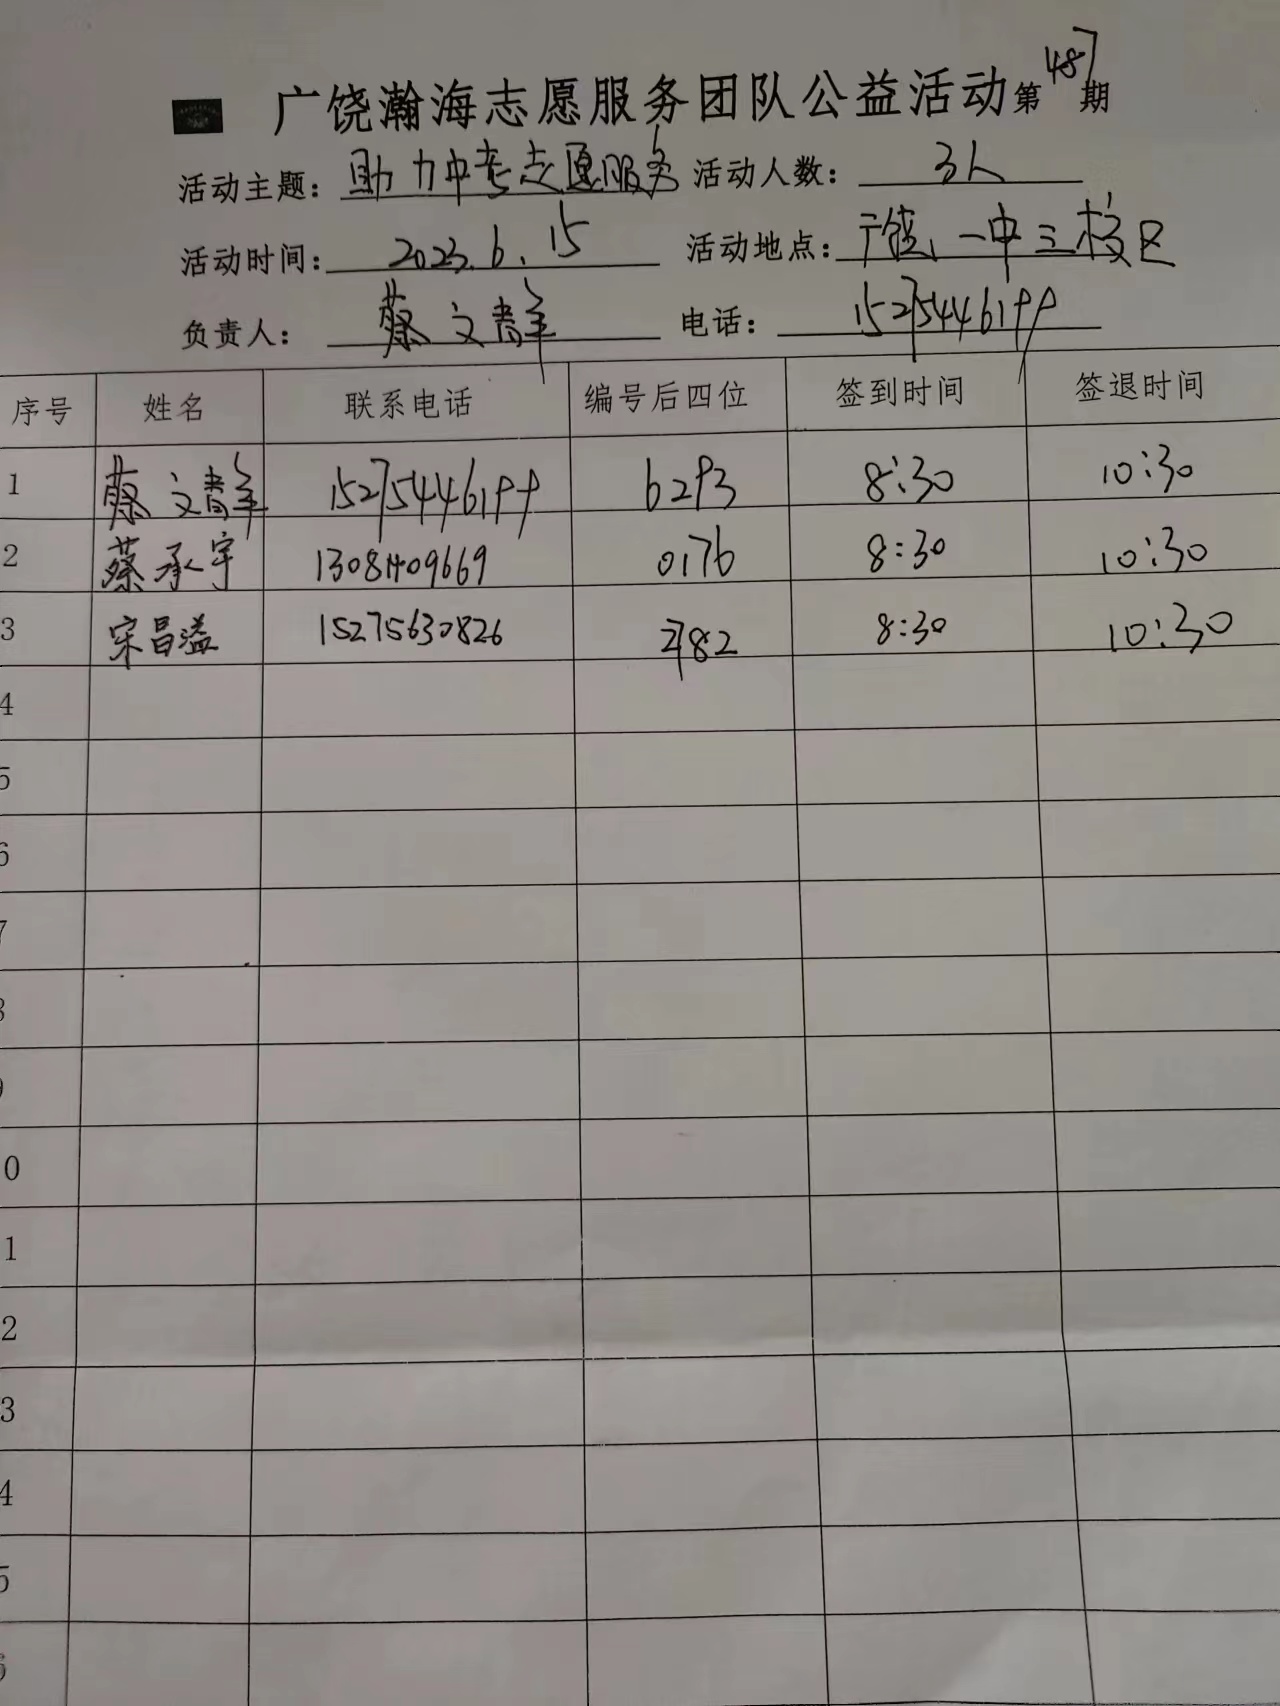 广饶瀚海志愿服务团队公益活动第487期
活动主题：助力中考志愿服务 活动人数：3人
活动时间：2023.6.15 活动地点：广饶一中三校区
负责人：蔡文群 电话：15275446199
序号 姓名 联系电话 编号后四位 签到时间 签退时间
1 蔡文群 15275446199 6293 8:30 10:30
2 蔡承宇 13081409669 0176 8:30 10:30
3 宋昌溢 15275630826 8:30 10:30
4
5
6
7
8
9
0
1
2
3
4
5